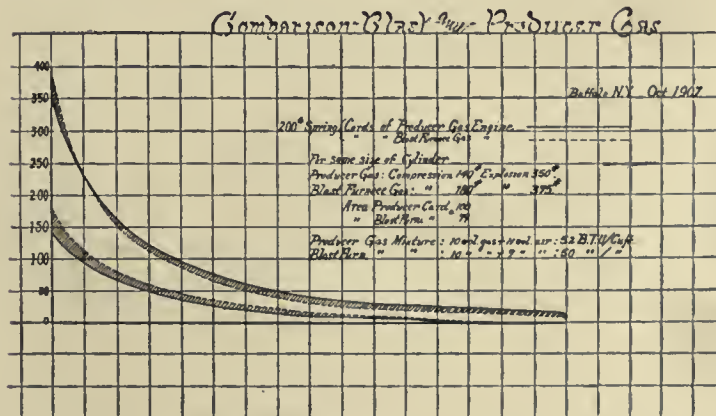 Comparison-Blast and Producer Gas
Buffalo N.Y. Oct 1907
200# Spring Cards of Producer Gas Engine
" " Blast Furnace Gas "
For same size of Cylinder
Producer Gas: Compression 140# Explosion 350#
Blast Furnace Gas: " 180# " 375#
Area Producer Card, 100
" Blast Furn. "
Producer Gas Mixture: 10 vol. gas + vol. air: 52 B.T.U/Cuft.
Blast Furn. " " : 10 " " + 7 " " : 50 " / "
400
350
300
250
200
150
100
50
0